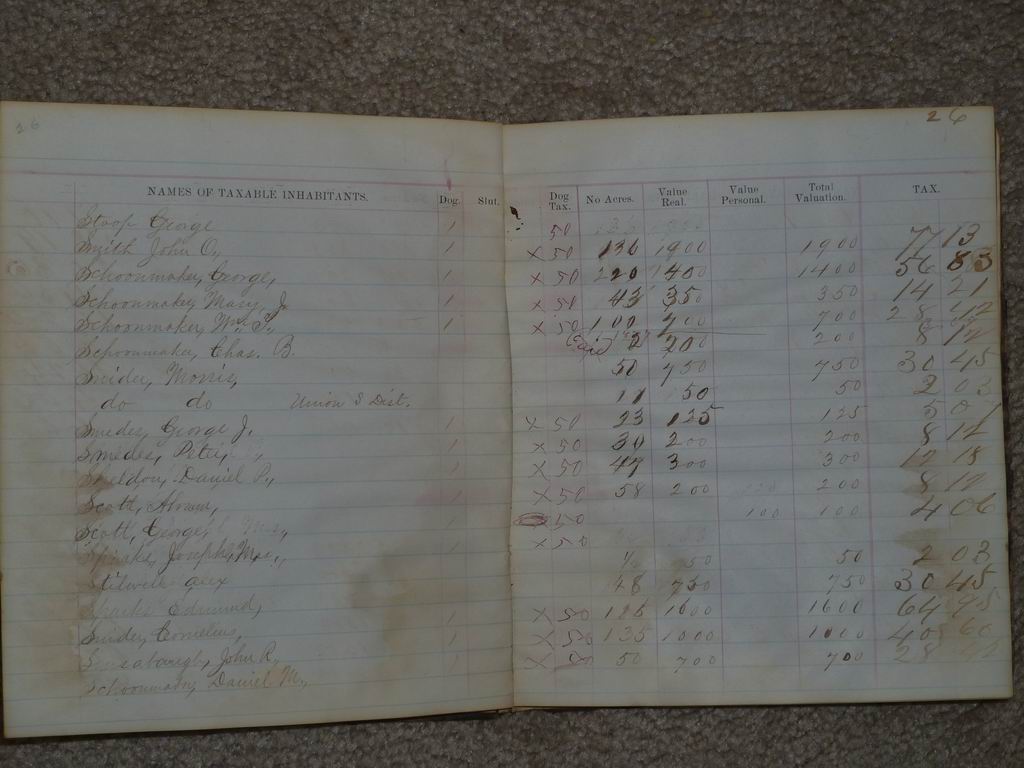 26 26
NAMES OF TAXABLE INHABITANTS. Dog. Slut. Dog Tax. No Acres. Value Real. Value Personal. Total Valuation. TAX.
Stoop George 1 50
Smith John O., 1 x 50 136 1900 1900 77 13
Schoonmaker, George, 1 x 50 220 1400 1400 56 83
Schoonmaker Mary J 1 x 50 43 350 350 14 21
Schoonmaker, Wm. S., 1 x 50 100 700 700 28 42
Schoonmaker, Chas. B. 2 200 200 8 12
Snider, Morris, 50 750 750 30 45
do do Union S Dist. 11 50 50 2 03
Smedes, George J. 1 x 50 23 125 125 5 07
Smedes, Peter, 1 x 50 30 200 200 8 12
Sheldon, Daniel P., 1 x 50 47 300 300 12 18
Scott, Abram, 1 x 50 58 200 200 8 12
Scott, George, 1 50 100 100 4 06
Sparks, Joseph, Mrs., 1 x 50
Stilwell 50 50 2 03
Sparks Edmund, 48 750 750 30 45
Snider, Cornelius, 1 x 50 1600 1600 64
John R, 1 x 50 135 1000 1000 40 60
Schoonmaker, Daniel M., 1 x 50 50 700 700 28 42